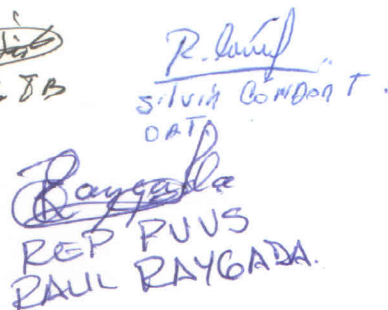 8B
Silvia CONDOR T.
OAT
Raygada
REP PUVS
RAUL RAYGADA.